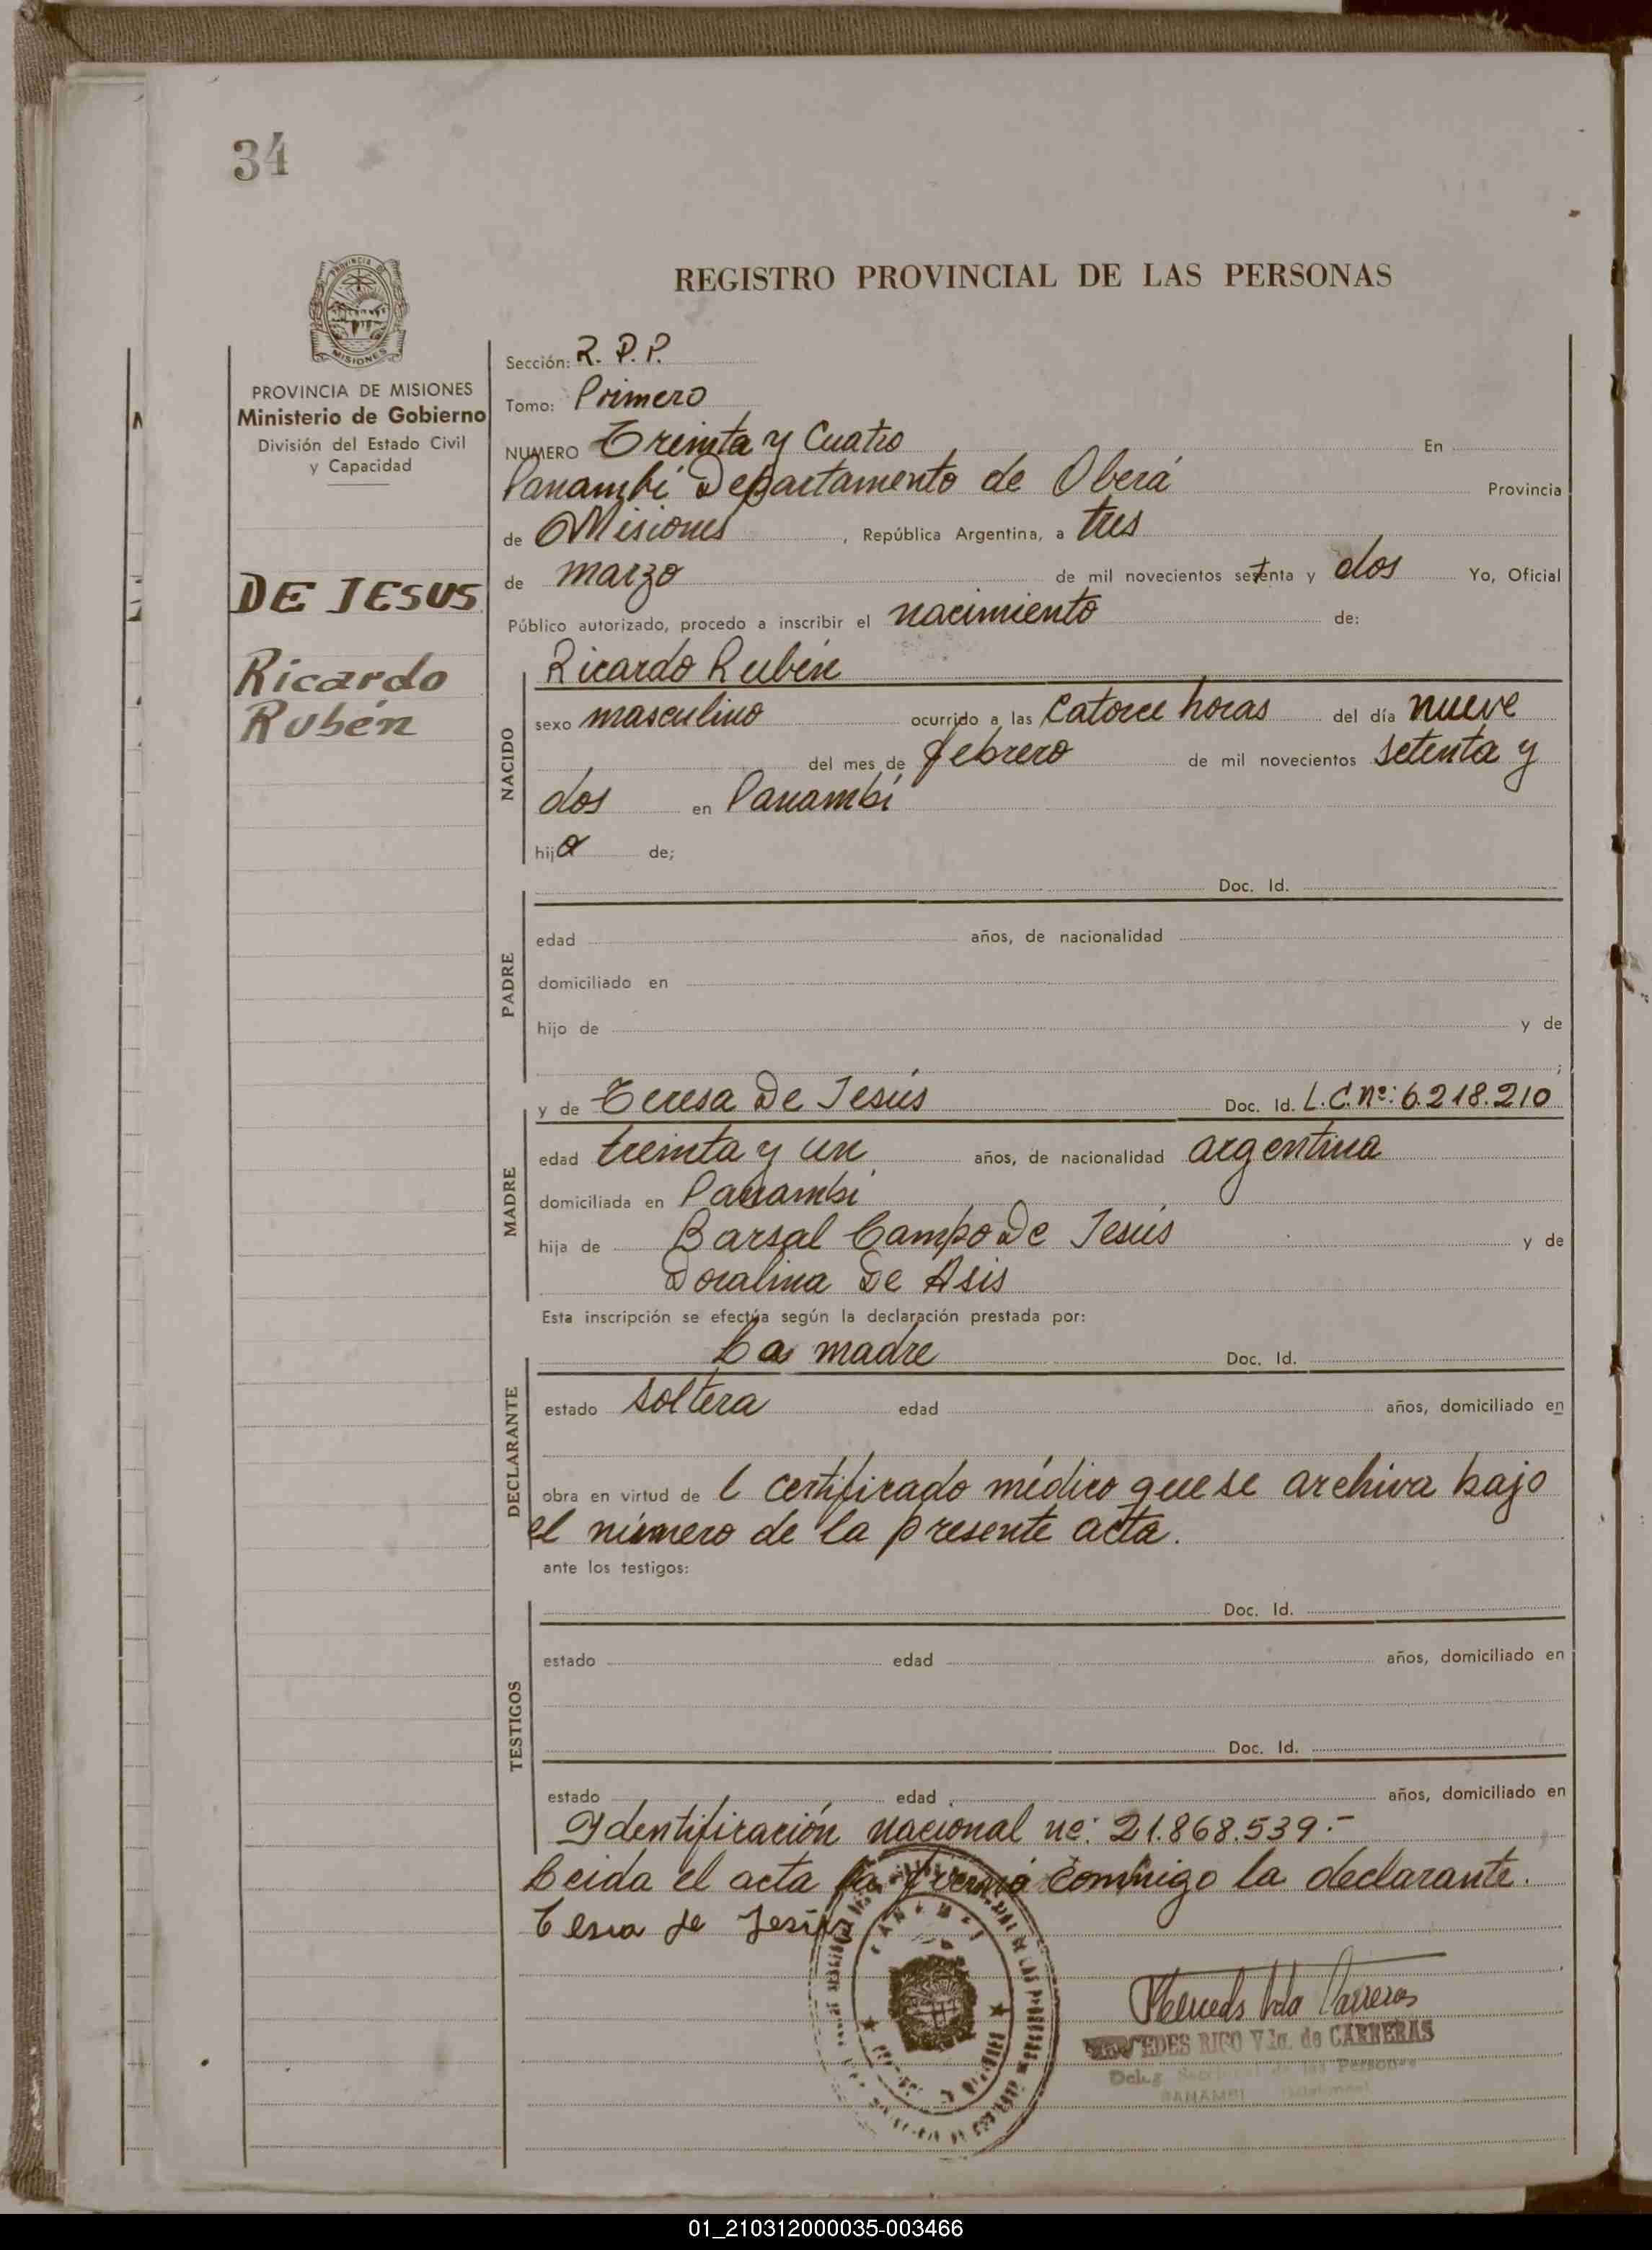 34
PROVINCIA DE
MISIONES
PROVINCIA DE MISIONES
Ministerio de Gobierno
División del Estado Civil
y Capacidad
DE JESUS
Ricardo
Rubén
REGISTRO PROVINCIAL DE LAS PERSONAS
Sección: R. P. P.
Tomo: Primero
NUMERO Treinta y Cuatro En
Panambí Departamento de Oberá Provincia
de Misiones, República Argentina, a tres
de marzo de mil novecientos setenta y dos Yo, Oficial
Público autorizado, procedo a inscribir el nacimiento de:
NACIDO
Ricardo Rubén
sexo masculino ocurrido a las Catorce horas del día nueve
del mes de febrero de mil novecientos setenta y
dos en Panambí
hijo de;
PADRE
Doc. Id.
edad años, de nacionalidad
domiciliado en
hijo de y de
;
MADRE
y de Teresa De Jesús Doc. Id. L.C.nº: 6.218.210
edad treinta y un años, de nacionalidad argentina
domiciliada en Panambí
hija de Barsal Campo De Jesús y de
Doralina De Asis
Esta inscripción se efectúa según la declaración prestada por:
DECLARANTE
La madre Doc. Id.
estado soltera edad años, domiciliado en
obra en virtud de l certificado médico que se archiva bajo
el número de la presente acta.
ante los testigos:
TESTIGOS
Doc. Id.
estado edad años, domiciliado en
Doc. Id.
estado edad años, domiciliado en
Identificación nacional nº: 21.868.539.-
Leida el acta la firmó conmigo la declarante.
de Jesús
MERCEDES RICO Vda. de CARRERAS
de las Personas
PANAMBI
01_210312000035-003466